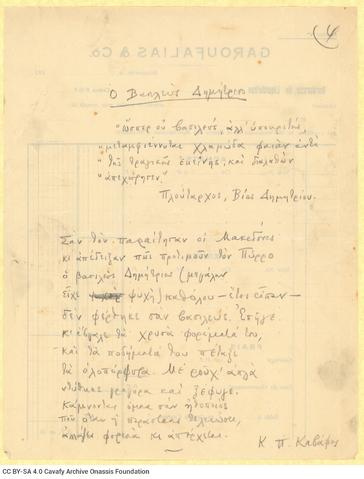 (4
GAROUFALIAS & Co.
Ο Βασιλεύς Δημήτριος
"ὥσπερ οὐ βασιλεύς, ἀλλ' ὑποκριτής,
"μεταμφιέννυται χλαμύδα φαιὰν ἀντὶ
"τῆς τραγικῆς ἐκείνης, καὶ διαλαθὼν
"ἀπεχώρησεν."
Πλούταρχος, Βίος Δημητρίου.
Σαν τον παραίτησαν οι Μακεδόνες
κι απέδειξαν πως προτιμούν τον Πύρρο
ο βασιλεύς Δημήτριος (μεγάλην
είχε ψυχή) καθόλου — έτσι είπαν —
δεν φέρθηκε σαν βασιλεύς. Επήγε
κ' έβγαλε τα χρυσά φορέματά του,
και τα ποδήματά του πέταξε
τα ολοπόρφυρα. Με ρούχ' απλά
ντύθηκε γρήγορα και ξέφυγε.
Κάμνοντας όμοια σαν ηθοποιός
που όταν η παράστασις τελειώσει,
αλλάζει φορεσιά κι απέρχεται.
Κ. Π. Καβάφης
CC BY-SA 4.0 Cavafy Archive Onassis Foundation